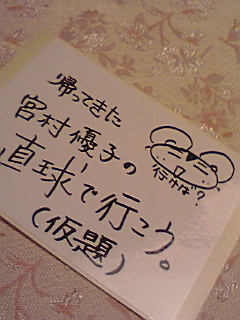 帰ってきた
宮村優子の
直球で行こう。
(仮題)
行かば?